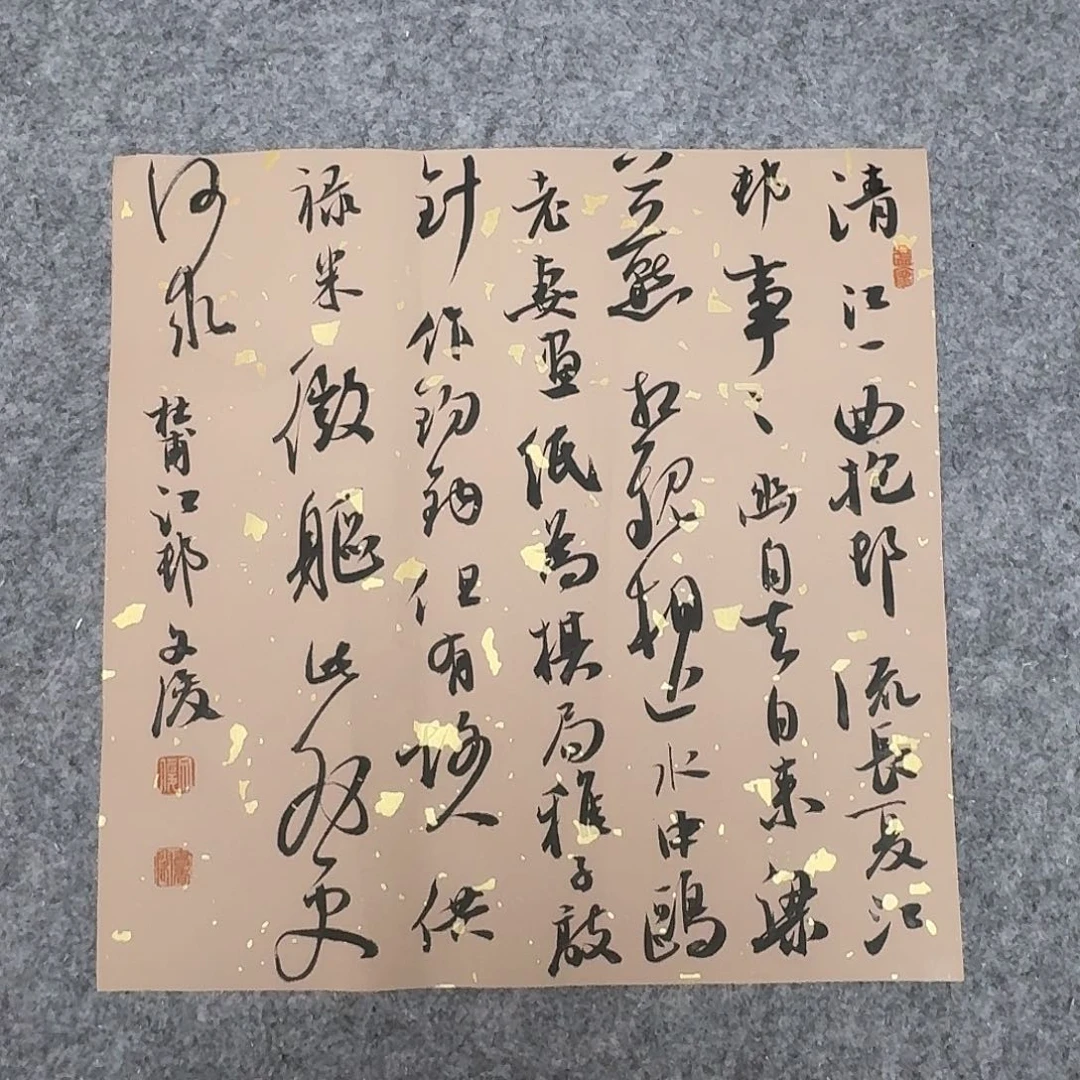 清江一曲抱邨流長夏江
邨事〻幽自去自来梁
上燕相親相近水中鷗
老妻畫紙為棋局稚子敲
針作釣鈎但有故人供
禄米微軀此外更
何求 杜甫江邨 文浚